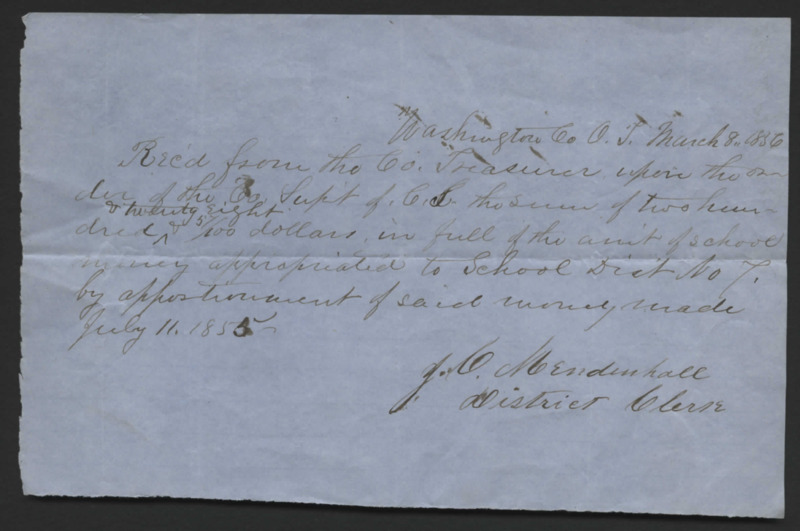 Washington Co O. T. March 8. 1856
Rec'd from the Co. Treasurer upon the or-
der of the Co. Supt of C. S. the sum of two hun-
& twenty eight
dred ^ & 5/100 dollars, in full of the amt of school
money appropriated to School Dist No 7.
by apportionment of said money made
July 11. 1855
J. C. Mendenhall
District Clerk